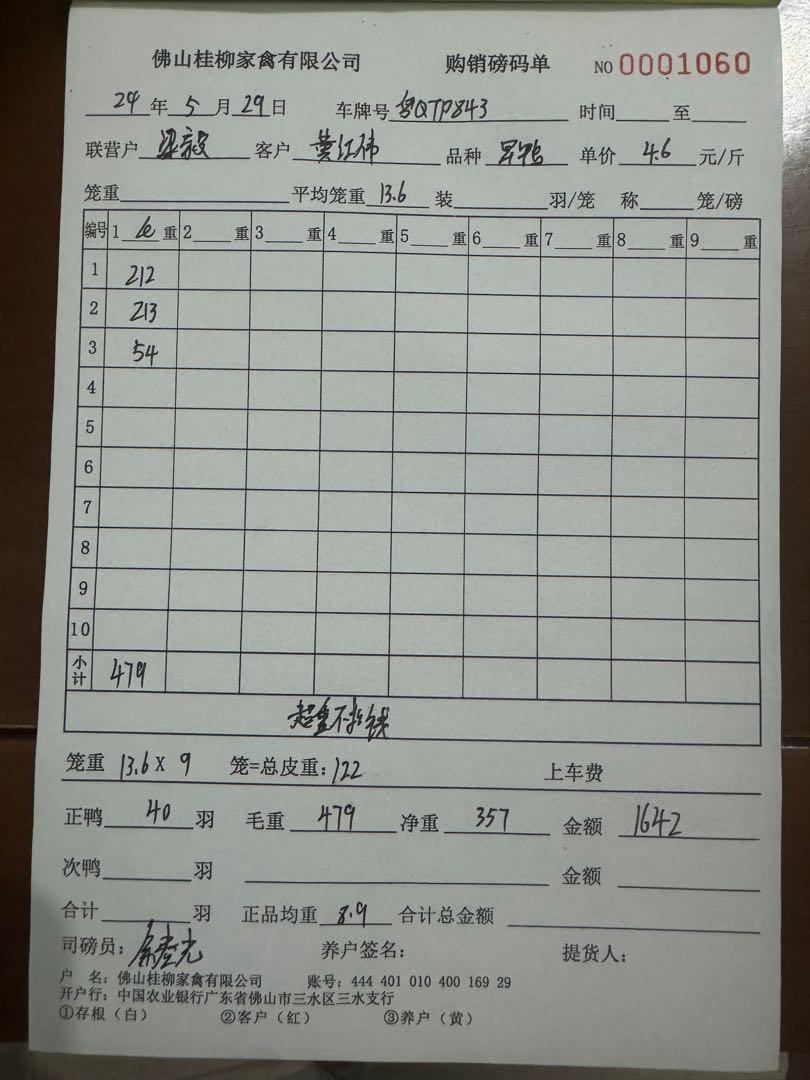 佛山桂柳家禽有限公司 购销磅码单 NO 0001060
24年5月29日 车牌号 粤QTP843 时间 至
联营户 梁毅 客户 黄江伟 品种 单价 4.6 元/斤
笼重 平均笼重 13.6 装 羽/笼 称 笼/磅
编号 1 重 2 重 3 重 4 重 5 重 6 重 7 重 8 重 9 重
1 212
2 213
3 54
4
5
6
7
8
9
10
小计 479
超重不扣钱
笼重 13.6 X 9 笼=总皮重: 122 上车费
正鸭 40 羽 毛重 479 净重 357 金额 1642
次鸭 羽 金额
合计 羽 正品均重 8.9 合计总金额
司磅员: 养户签名: 提货人:
户 名: 佛山桂柳家禽有限公司 账号: 444 401 010 400 169 29
开户行: 中国农业银行广东省佛山市三水区三水支行
①存根(白) ②客户(红) ③养户(黄)